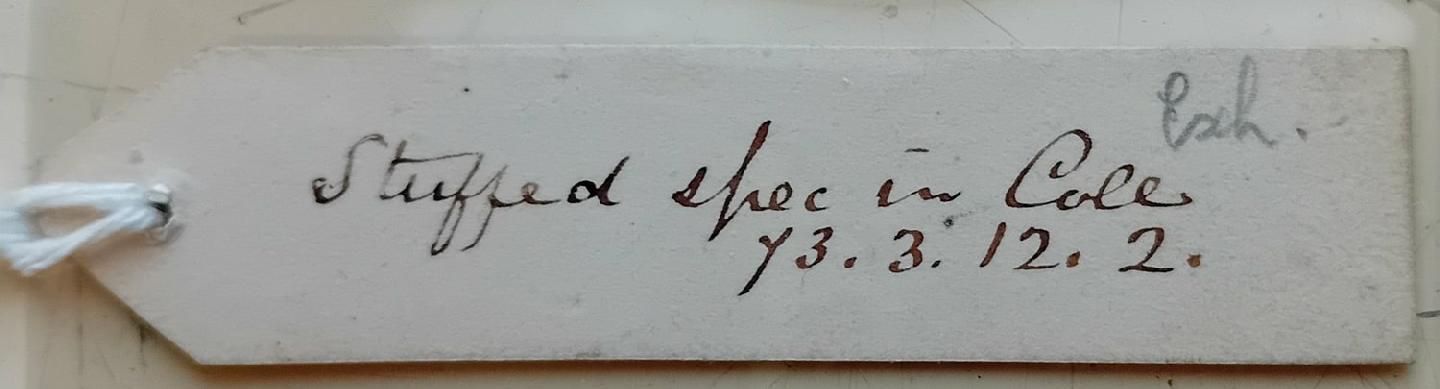 Exh.
Stuffed spec in Coll
73. 3. 12. 2.